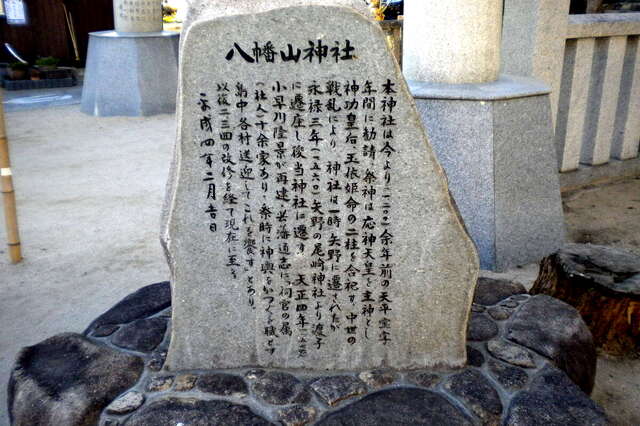 八幡山神社
本神社は今より(一二〇〇)余年前の天平宝字
年間に勧請、祭神は応神天皇を主神とし
神功皇后、玉依姫命の二柱を合祀す。中世の
戦乱により神社は一時矢野に遷されたが
永禄三年(一五六〇)矢野の尾崎神社より渡子
に遷座し後当神社に遷す 天正四年
小早川隆景が再建、芸藩通志に、祠官の属
(社人)十余家あり、祭時に神輿をかつぐを職とす
島中各村送迎してこれを饗す、とあり
以後二三回の改修を経て現在に至る
平成四年二月吉日